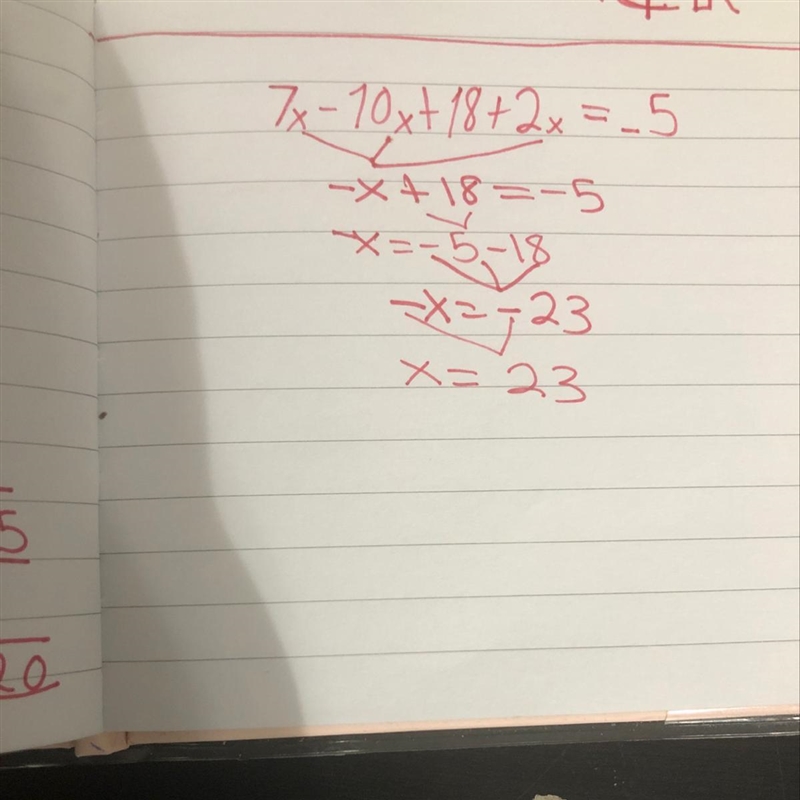 7x-10x+18+2x=-5
-x+18=-5
-x=-5-18
-x=-23
x=23
5
20